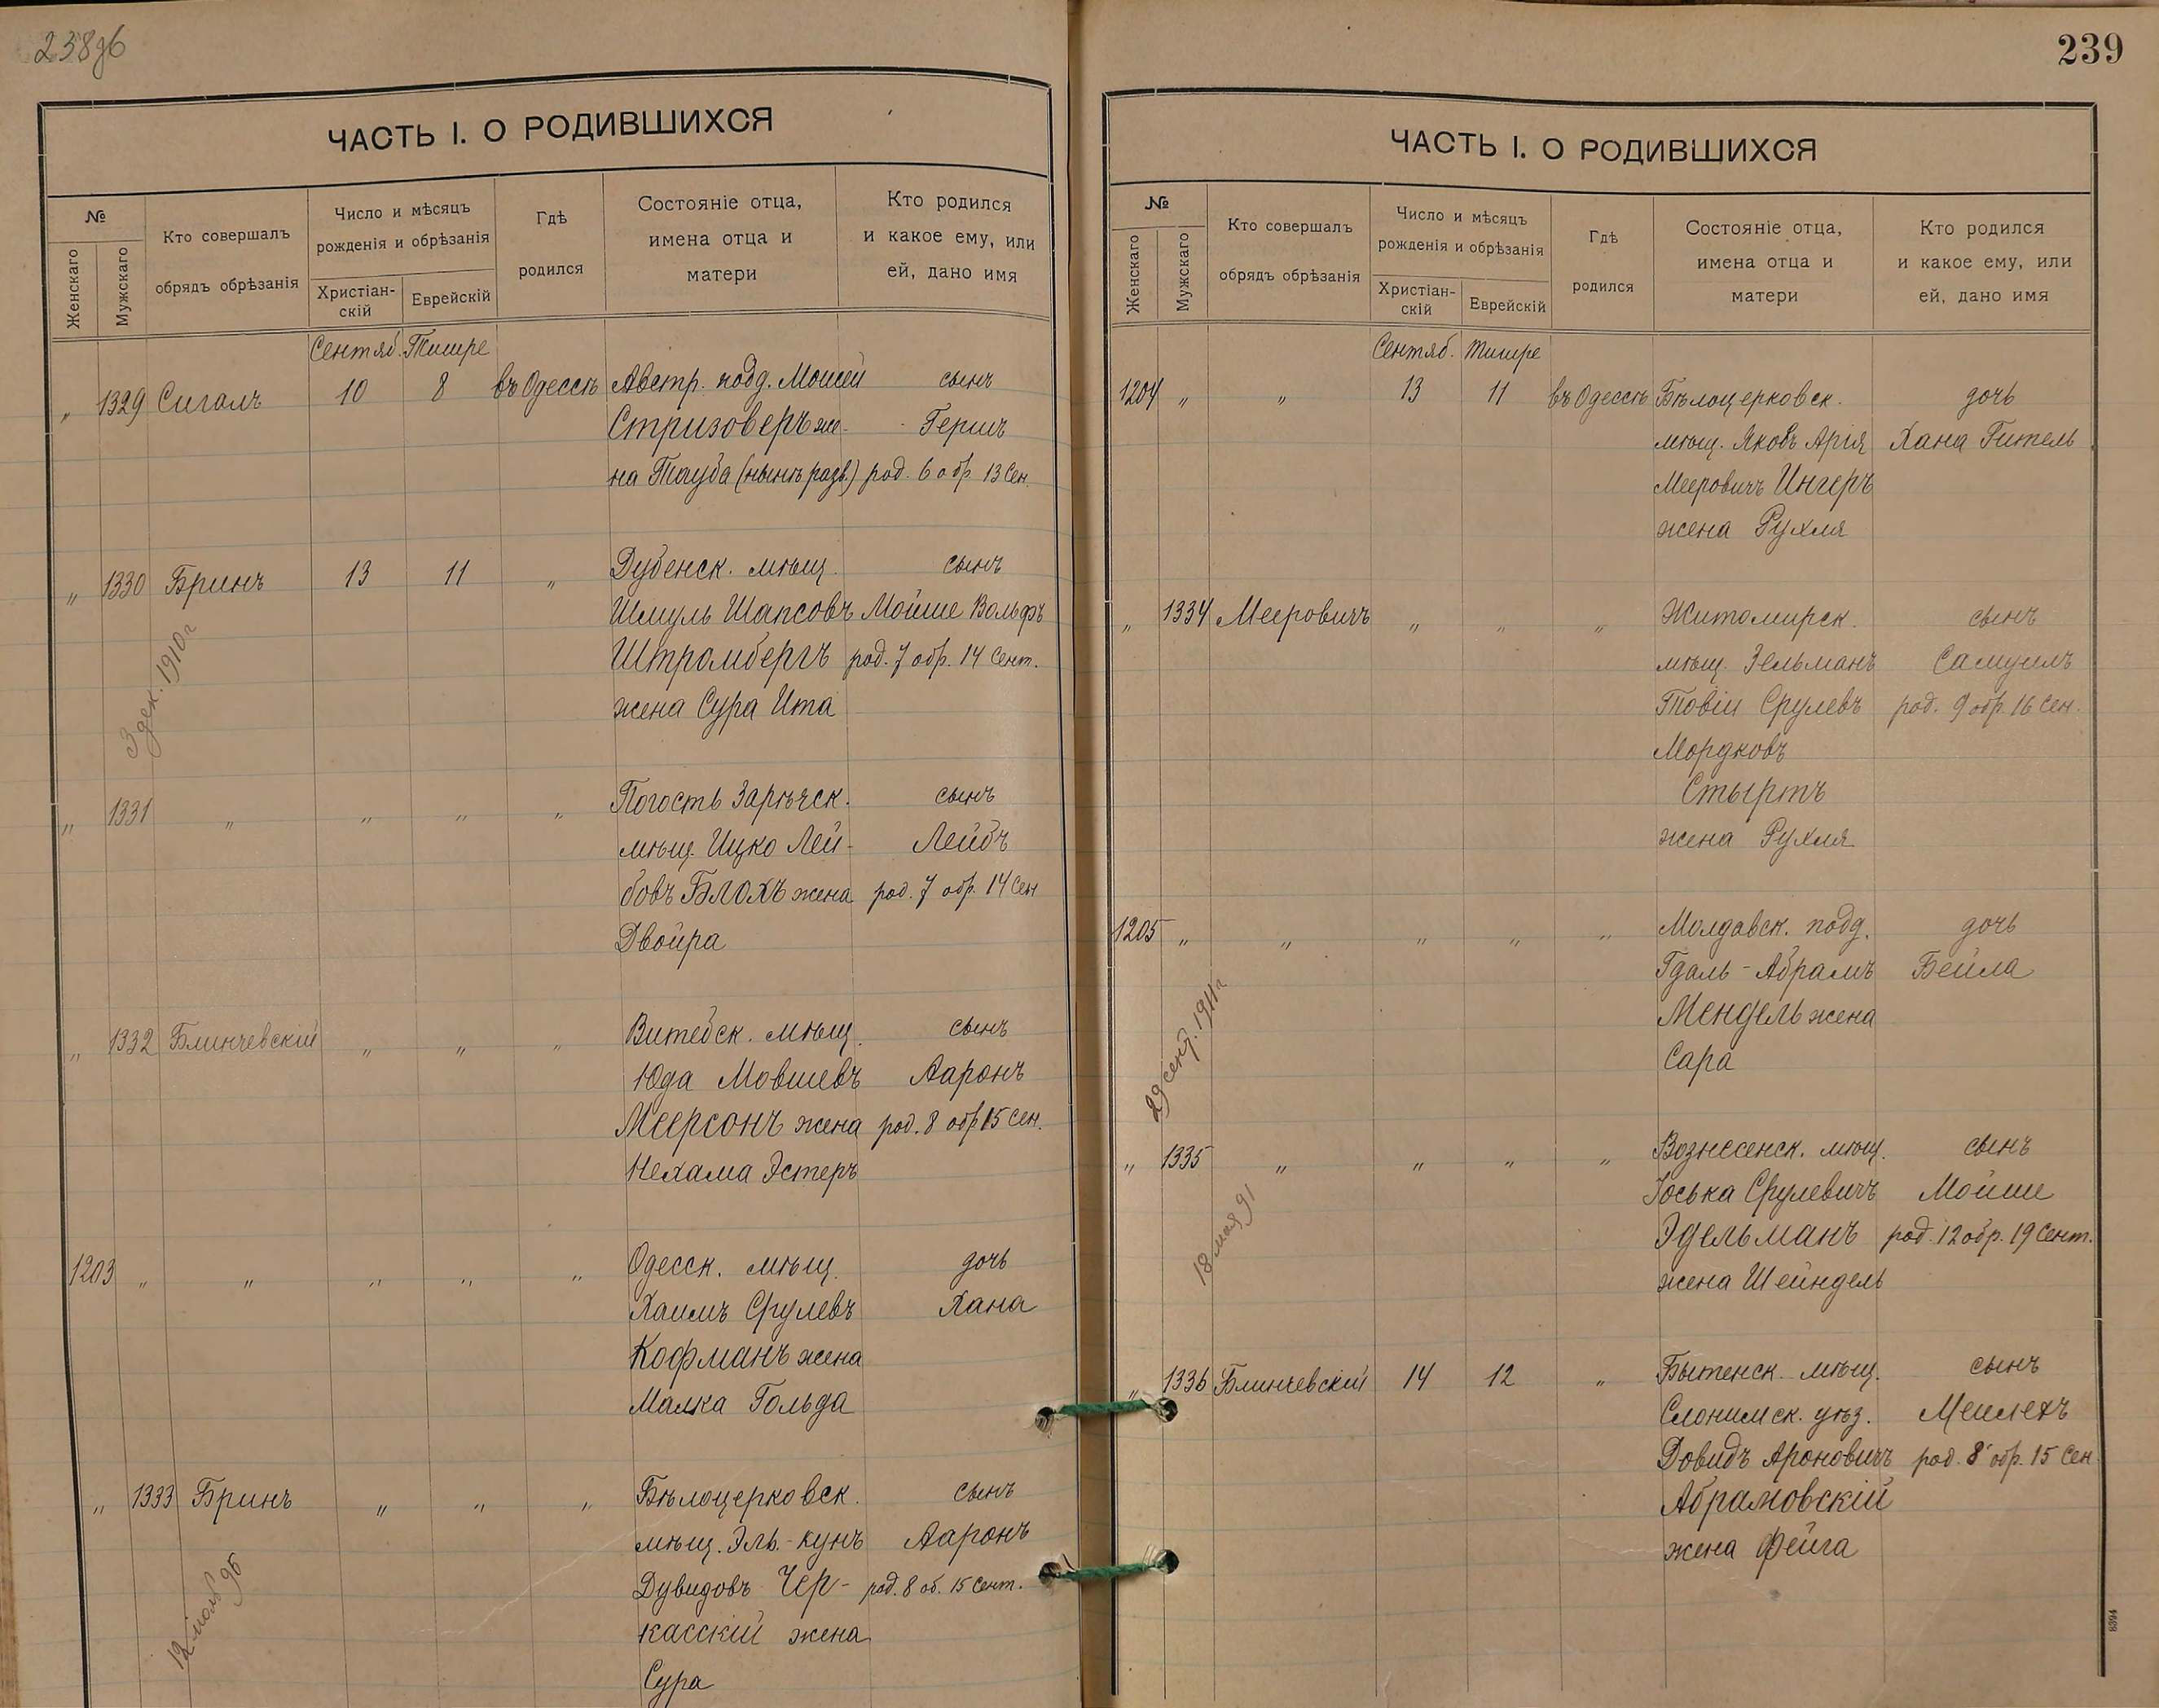 238об
ЧАСТЬ I. О РОДИВШИХСЯ
№
Женскаго
Мужскаго
Кто совершалъ
обрядъ обрѣзанія
Число и мѣсяцъ
рожденія и обрѣзанія
Христіан-
скій
Еврейскій
Гдѣ
родился
Состояніе отца,
имена отца и
матери
Кто родился
и какое ему, или
ей, дано имя
Сентяб. Тишре
„ 1329 Сигалъ 10 8 въ Одессѣ Австр. подд. Моисей сынъ
Стризоверъ же- Гершъ
на Тауба (нынѣ разв.) род. 6 обр. 13 Сен.
„ 1330 Бринъ 13 11 „ Дубенск. мѣщ. сынъ
Шмуль Шапсовъ Мойше Вольфъ
Штромбергъ род. 7 обр. 14 Сент.
жена Сура Ита
3 дек. 1910 г
„ 1331 „ „ „ „ Погость Зарѣчск. сынъ
мѣщ. Ицко Лей- Лейбъ
бовъ Блохъ жена род. 7 обр. 14 Сен
Двойра
„ 1332 Блинчевскій „ „ „ Витебск. мѣщ. сынъ
Юда Мовшевъ Ааронъ
Меерсонъ жена род. 8 обр 15 Сен.
Нехама Эстеръ
1203 „ „ „ „ „ Одесск. мѣщ. дочь
Хаимъ Срулевъ Хана
Кофманъ жена
Малка Гольда
„ 1333 Бринъ „ „ „ Бѣлоцерковск. сынъ
мѣщ. Эль-кунъ Ааронъ
Дувидовъ Чер- род. 8 об. 15 Сент.
касскій жена
Сура
239
ЧАСТЬ I. О РОДИВШИХСЯ
№
Женскаго
Мужскаго
Кто совершалъ
обрядъ обрѣзанія
Число и мѣсяцъ
рожденія и обрѣзанія
Христіан-
скій
Еврейскій
Гдѣ
родился
Состояніе отца,
имена отца и
матери
Кто родился
и какое ему, или
ей, дано имя
Сентяб. Тишре
1204 „ „ 13 11 въ Одессѣ Бѣлоцерковск. дочь
мѣщ. Яковъ Арія Хана Гитель
Мееровичъ Ингеръ
жена Рухля
„ 1334 Мееровичъ „ „ „ Житомирск. сынъ
мѣщ. Зельманъ Самуилъ
Товіи Срулевъ род. 9 обр. 16 Сен.
Мордковъ
Стыртъ
жена Рухля
1205 „ „ „ „ „ Молдавск. подд. дочь
Гдаль-Абрамъ Бейла
Мендель жена
Сара
29 сент. 1911 г
„ 1335 „ „ „ „ Вознесенск. мѣщ. сынъ
Іоська Срулевичъ Мойше
Эдельманъ род. 12 обр. 19 Сент.
жена Шейндель
18 мая 91
„ 1336 Блинчевскій 14 12 „ Бытенск. мѣщ. сынъ
Слонимск. уѣз. Мейлехъ
Довидъ Ароновичъ род. 8 обр. 15 Сен
Абрамовскій
жена Фейга
8394